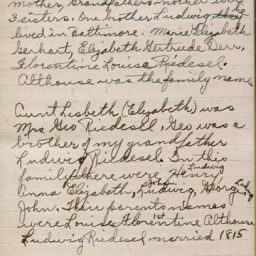 mother, Grandfathers mother
3 sisters. One brother Ludwig they
lived in Baltimore. Marie Elizabeth
Gerhart, Elizabeth Gertrude Derr,
Florentine Louise Riedesel.
Althouse was the family name
Aunt Lisbeth (Elizabeth) was
Mrs Geo Riedesell, Geo was a
brother of my grandfather
Ludwig Riedesel. In this
family there were Henry Ludwig
Anna Elizabeth, Ludwig, George
John. Their parents names
were Louise Florentine Althouse
Ludwig Riedesel married 1815